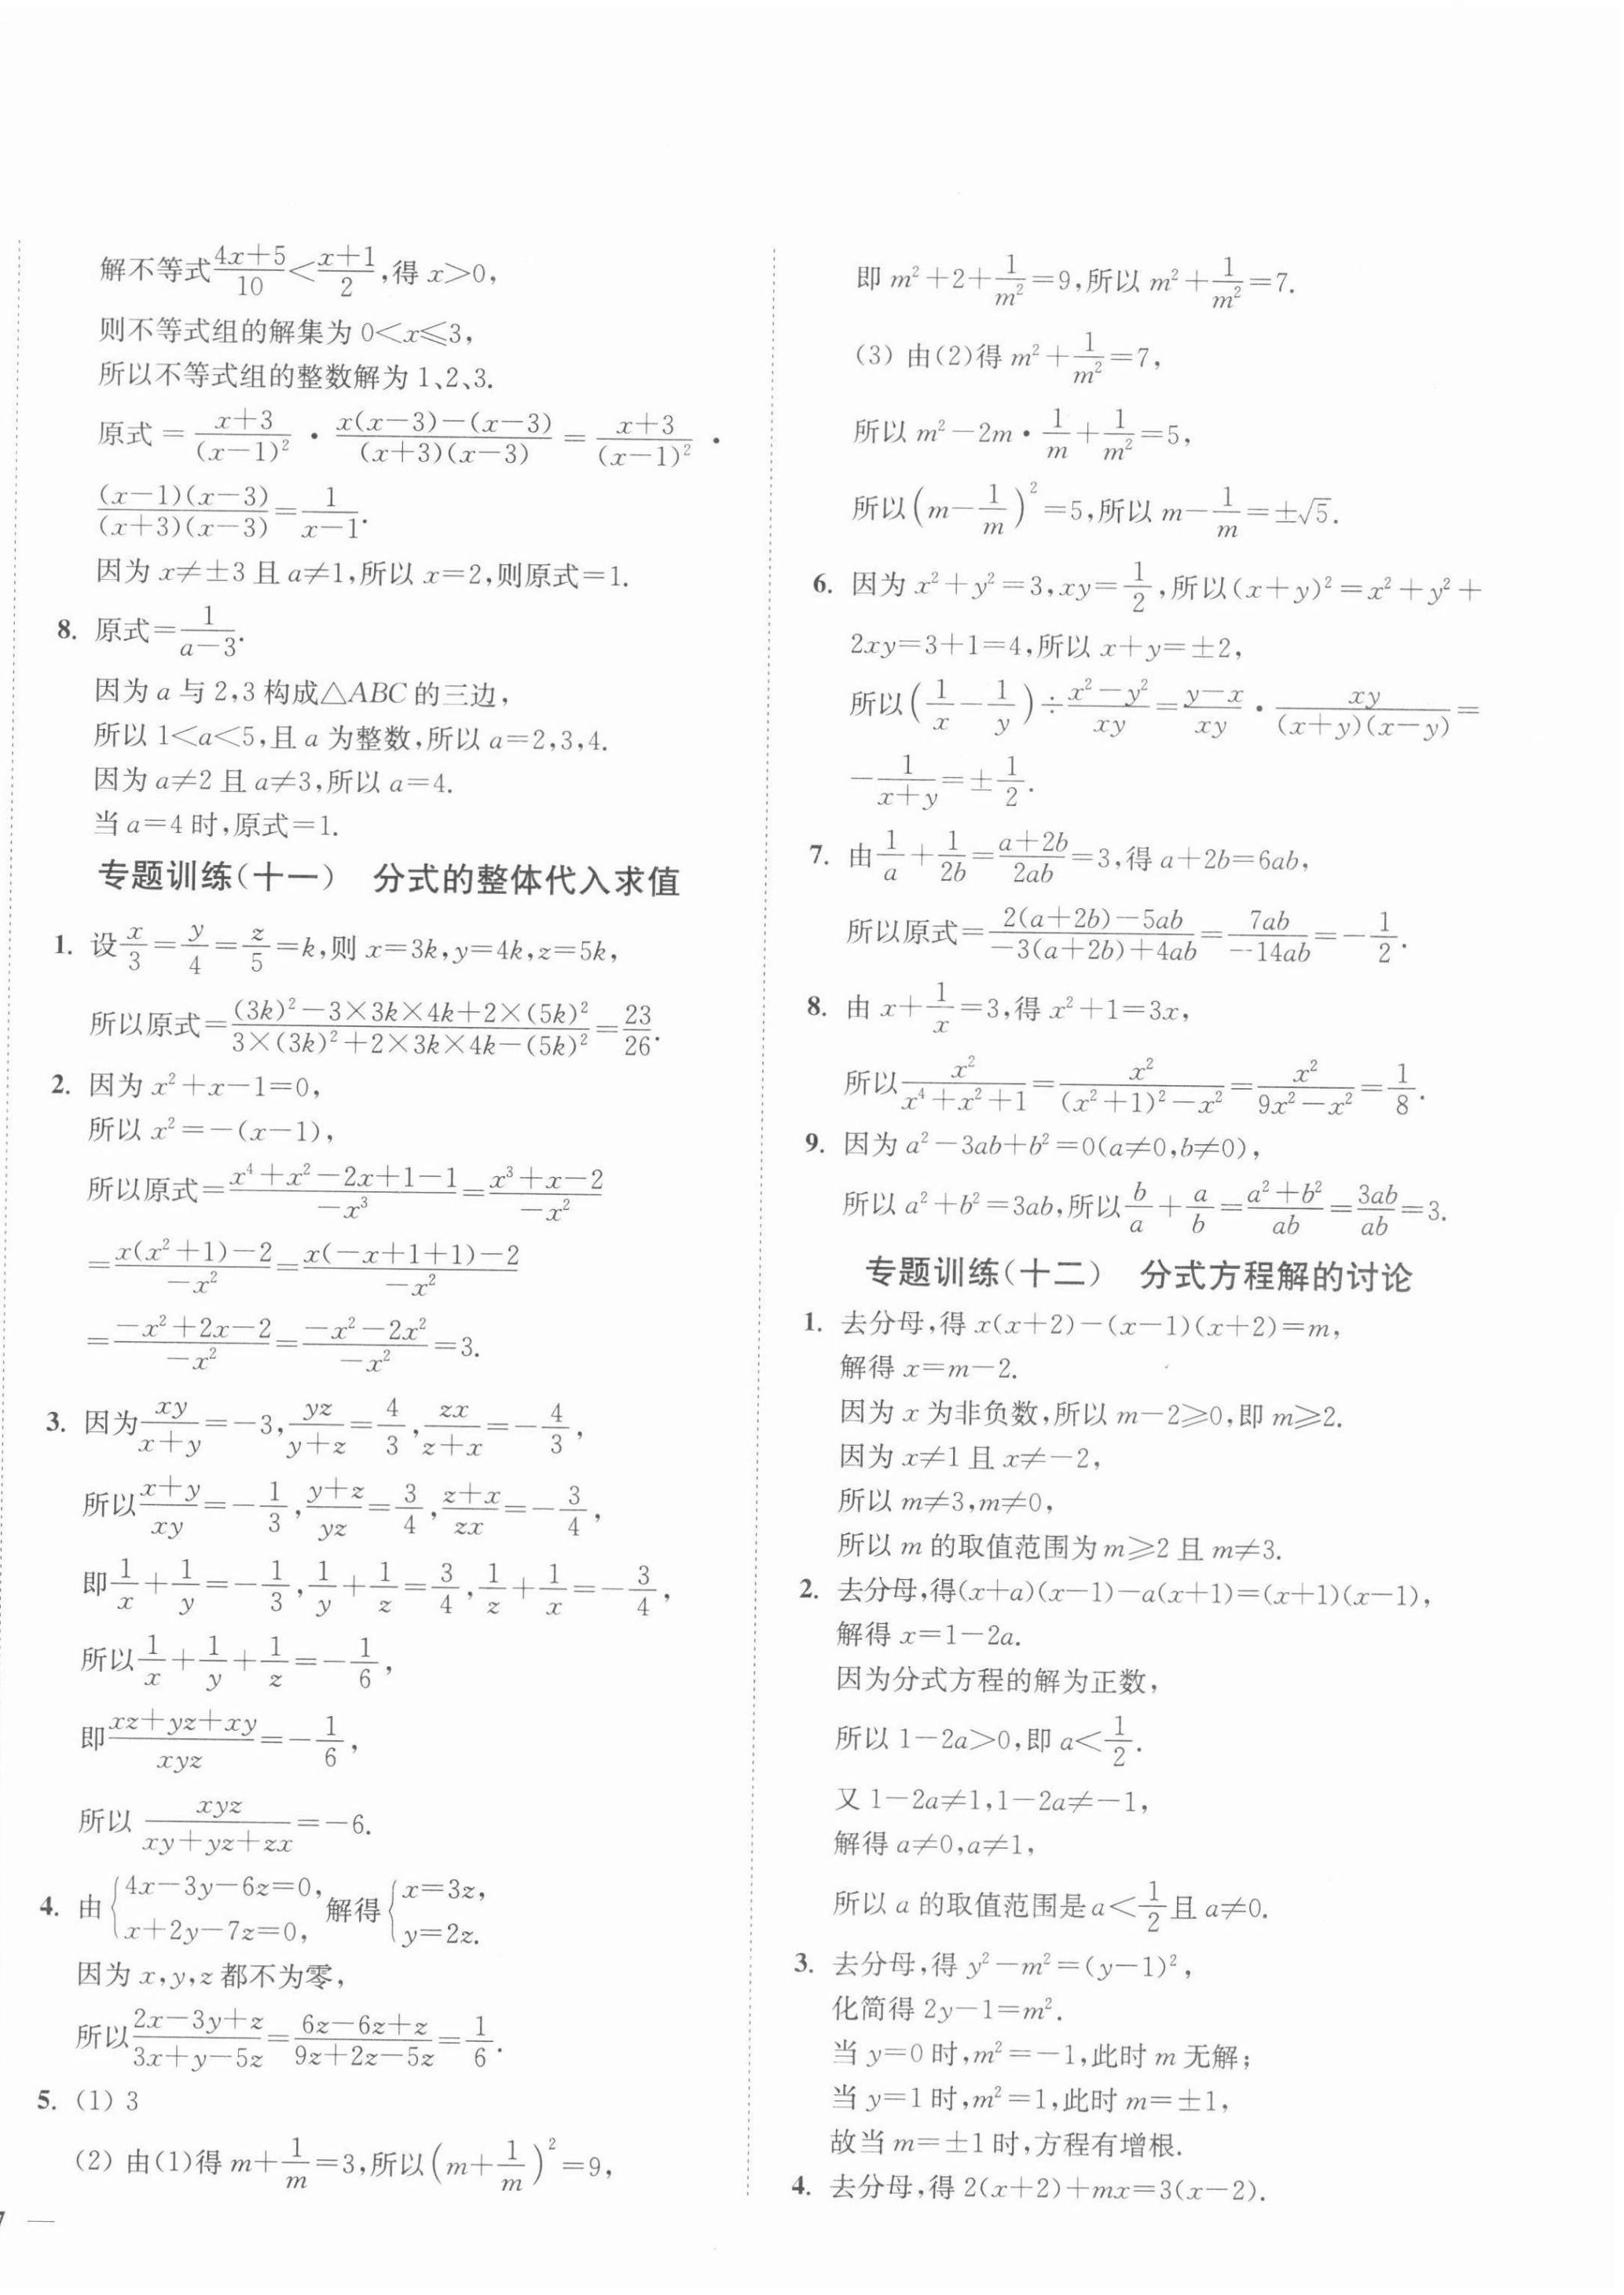 解不等式(4x+5)/10<(x+1)/2,得 x>0,
则不等式组的解集为 0<x⩽3,
所以不等式组的整数解为 1、2、3.
原式=(x+3)/(x−1)²·[x(x−3)−(x−3)]/[(x+3)(x−3)]=(x+3)/(x−1)²·
[(x−1)(x−3)]/[(x+3)(x−3)]=1/(x−1).
因为 x≠±3 且 a≠1,所以 x=2,则原式=1.
8. 原式=1/(a−3).
因为 a 与 2,3 构成△ABC 的三边,
所以 1<a<5,且 a 为整数,所以 a=2,3,4.
因为 a≠2 且 a≠3,所以 a=4.
当 a=4 时,原式=1.
专题训练(十一) 分式的整体代入求值
1. 设x/3=y/4=z/5=k,则 x=3k,y=4k,z=5k,
所以原式=[(3k)²−3×3k×4k+2×(5k)²]/[3×(3k)²+2×3k×4k−(5k)²]=23/26.
2. 因为 x²+x−1=0,
所以 x²=−(x−1),
所以原式=(x⁴+x²−2x+1−1)/(−x³)=(x³+x−2)/(−x²)
=[x(x²+1)−2]/(−x²)=[x(−x+1+1)−2]/(−x²)
=(−x²+2x−2)/(−x²)=(−x²−2x²)/(−x²)=3.
3. 因为xy/(x+y)=−3,yz/(y+z)=4/3,zx/(z+x)=−4/3,
所以(x+y)/xy=−1/3,(y+z)/yz=3/4,(z+x)/zx=−3/4,
即1/x+1/y=−1/3,1/y+1/z=3/4,1/z+1/x=−3/4,
所以1/x+1/y+1/z=−1/6,
即(xz+yz+xy)/xyz=−1/6,
所以 xyz/(xy+yz+zx)=−6.
4. 由{4x−3y−6z=0, x+2y−7z=0, 解得{x=3z, y=2z.
因为 x,y,z 都不为零,
所以(2x−3y+z)/(3x+y−5z)=(6z−6z+z)/(9z+2z−5z)=1/6.
5. (1) 3
(2) 由(1)得 m+1/m=3,所以(m+1/m)²=9,
7 —
即 m²+2+1/m²=9,所以 m²+1/m²=7.
(3) 由(2)得 m²+1/m²=7,
所以 m²−2m·1/m+1/m²=5,
所以(m−1/m)²=5,所以 m−1/m=±√5.
6. 因为 x²+y²=3,xy=1/2,所以(x+y)²=x²+y²+
2xy=3+1=4,所以 x+y=±2,
所以(1/x−1/y)÷(x²−y²)/xy=(y−x)/xy·xy/[(x+y)(x−y)]=
−1/(x+y)=±1/2.
7. 由1/a+1/2b=(a+2b)/2ab=3,得 a+2b=6ab,
所以原式=[2(a+2b)−5ab]/[−3(a+2b)+4ab]=7ab/(−14ab)=−1/2.
8. 由 x+1/x=3,得 x²+1=3x,
所以x²/(x⁴+x²+1)=x²/[(x²+1)²−x²]=x²/(9x²−x²)=1/8.
9. 因为 a²−3ab+b²=0(a≠0,b≠0),
所以 a²+b²=3ab,所以b/a+a/b=(a²+b²)/ab=3ab/ab=3.
专题训练(十二) 分式方程解的讨论
1. 去分母,得 x(x+2)−(x−1)(x+2)=m,
解得 x=m−2.
因为 x 为非负数,所以 m−2⩾0,即 m⩾2.
因为 x≠1 且 x≠−2,
所以 m≠3,m≠0,
所以 m 的取值范围为 m⩾2 且 m≠3.
2. 去分母,得(x+a)(x−1)−a(x+1)=(x+1)(x−1),
解得 x=1−2a.
因为分式方程的解为正数,
所以 1−2a>0,即 a<1/2.
又 1−2a≠1,1−2a≠−1,
解得 a≠0,a≠1,
所以 a 的取值范围是 a<1/2且 a≠0.
3. 去分母,得 y²−m²=(y−1)²,
化简得 2y−1=m².
当 y=0 时,m²=−1,此时 m 无解;
当 y=1 时,m²=1,此时 m=±1,
故当 m=±1 时,方程有增根.
4. 去分母,得 2(x+2)+mx=3(x−2).